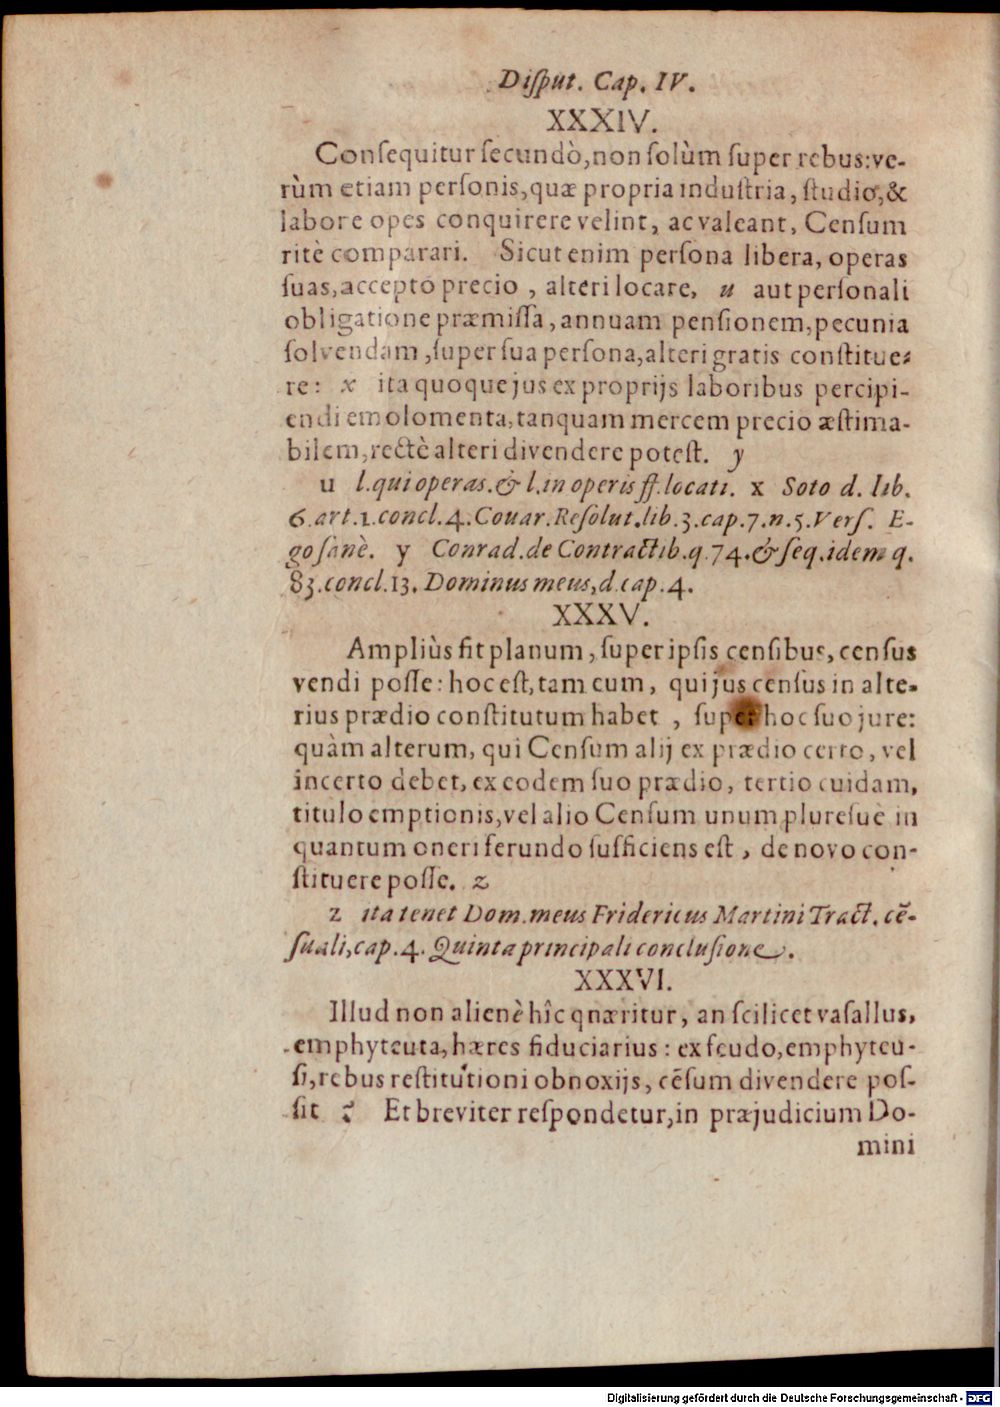 Diſput. Cap. IV.
XXXIV.
Conſequitur ſecundò, non ſolùm ſuper rebus: ve-
rùm etiam perſonis, quæ propria induſtria, ſtudio, &
labore opes conquirere velint, ac valeant, Cenſum
ritè comparari. Sicut enim perſona libera, operas
ſuas, accepto precio, alteri locare, u aut perſonali
obligatione præmiſſa, annuam penſionem, pecunia
ſolvendam, ſuper ſua perſona, alteri gratis conſtitue-
re: x ita quoque jus ex proprijs laboribus percipi-
endi emolomenta, tanquam mercem precio æſtima-
bilem, rectè alteri divendere poteſt. y
u l. qui operas. & l. in operis ff. locati. x Soto d. lib.
6. art. 1. concl. 4. Covar. Reſolut. lib. 3. cap. 7. n. 5. Verſ. E-
go ſanè. y Conrad. de Contract lib. q. 74. & ſeq. idem q.
83. concl. 13. Dominus meus, d. cap. 4.
XXXV.
Ampliùs fit planum, ſuper ipſis cenſibus, cenſus
vendi poſſe: hoc eſt, tam cum, qui jus cenſus in alte-
rius prædio conſtitutum habet, ſuper hoc ſuo jure:
quàm alterum, qui Cenſum alij ex prædio certo, vel
incerto debet, ex eodem ſuo prædio, tertio cuidam,
titulo emptionis, vel alio Cenſum unum plureſuè in
quantum oneri ferundo ſufficiens eſt, de novo con-
ſtituere poſſe. z
z ita tenet Dom. meus Fridericus Martini Tract. cē-
ſuali, cap. 4. Quinta principali concluſione.
XXXVI.
Illud non alienè hîc qnæritur, an ſcilicet vaſallus,
emphyteuta, hæres fiduciarius: ex feudo, emphyteu-
ſi, rebus reſtitutioni obnoxijs, cēſum divendere poſ-
ſit? Et breviter reſpondetur, in præjudicium Do-
mini
Digitalisierung gefördert durch die Deutsche Forschungsgemeinschaft - DFG